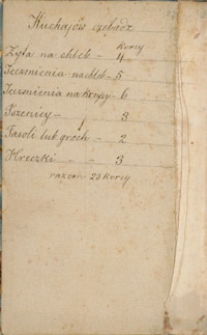 Kuchajów czeladź
Korcy
Żyta na chleb - 4
Jęczmienia na chleb - 5
Jęczmienia na krupy - 6
Pszenicy - 3
Fasoli lub groch - 2
Hreczki - 3
razem - 23 korcy